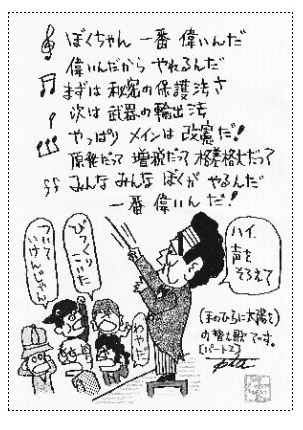 ぼくちゃん 一番 偉いんだ
偉いんだから やれるんだ
まずは 秘密の保護法さ
次は 武器の輸出法
やっぱり メインは 改憲だ!
原発だって 増税だって 格差格大だって
みんな みんな ぼくが やるんだ
一番 偉いんだ!
ハイ
声を
そろえて
びっくり
こいた
ついて
いけんじゃん
わやだん
(手のひらに太陽を)
の替え歌です。
[パート2]